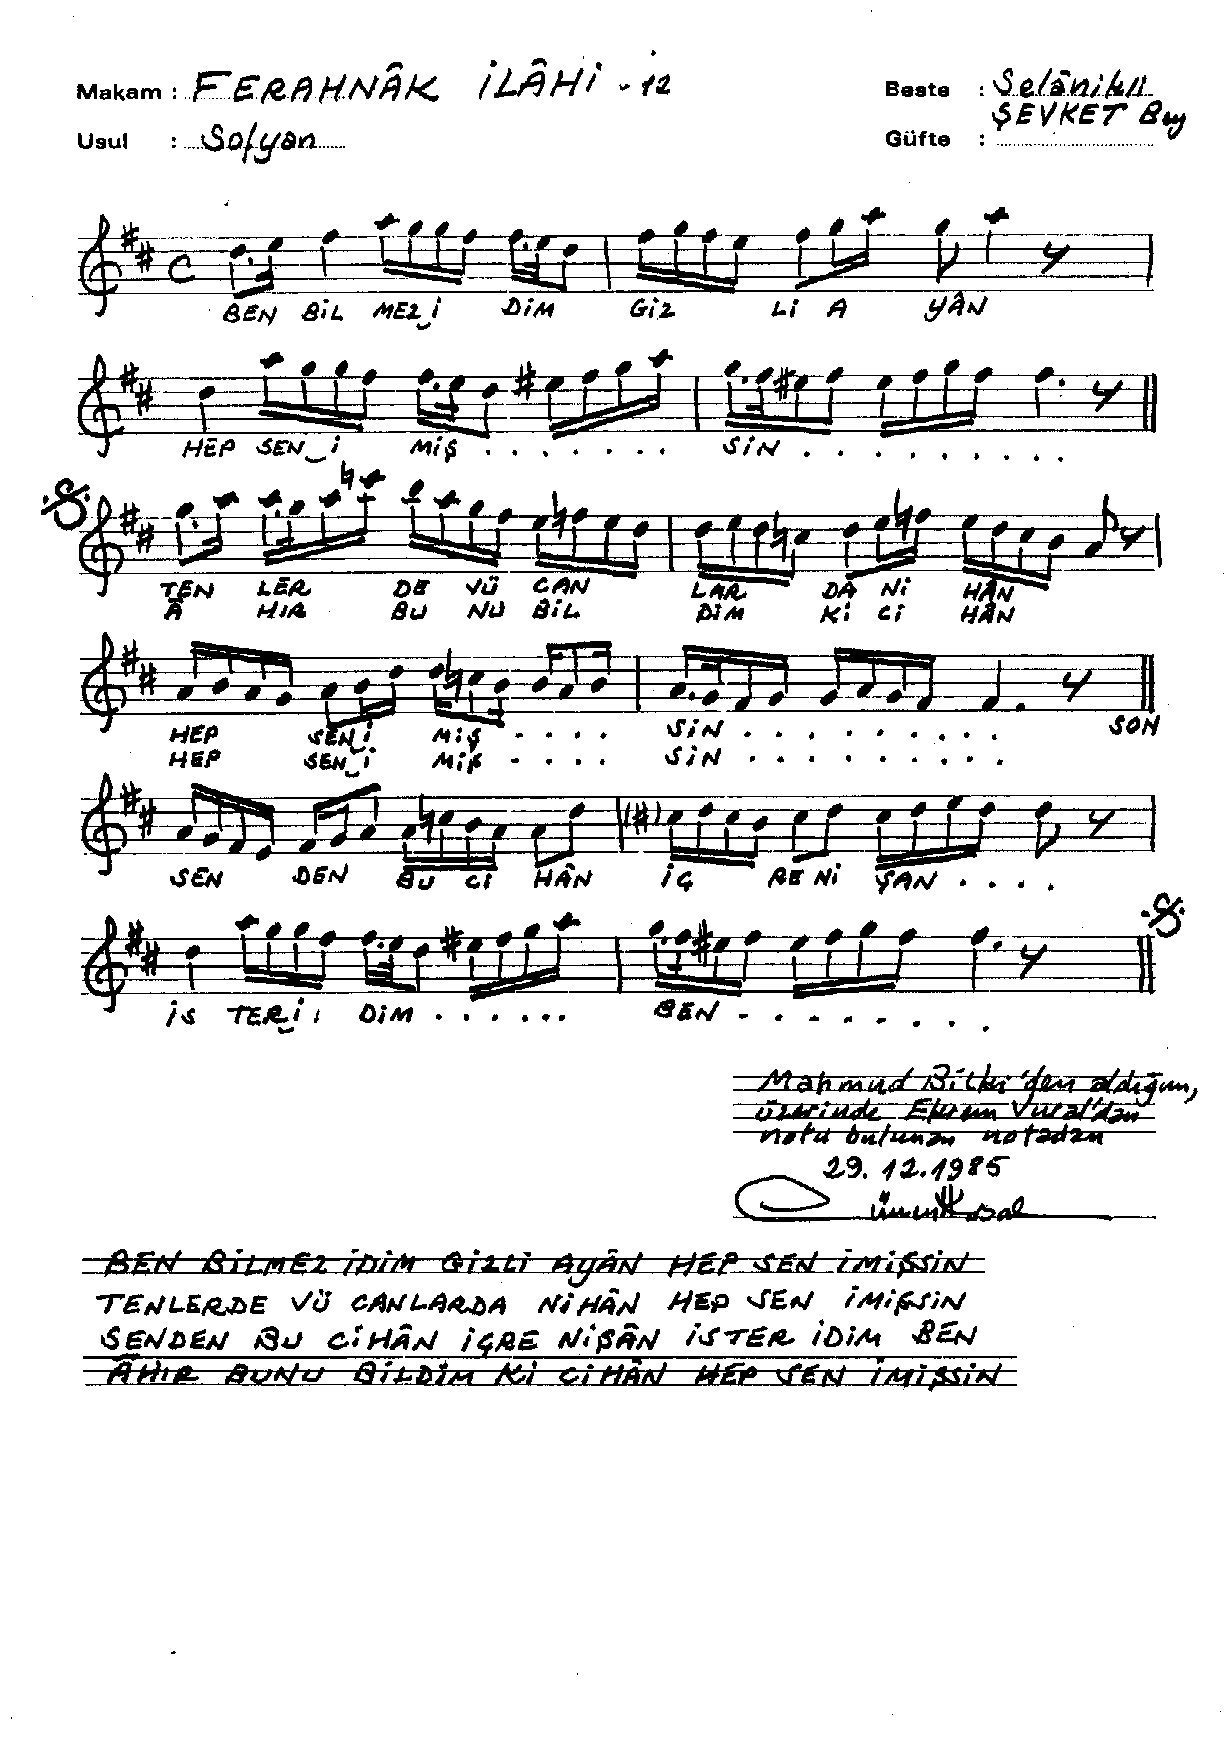 Makam : FERAHNÂK İLÂHİ - 12
Beste : Selânikli
ŞEVKET Bey
Usul : Sofyan
Güfte :
BEN BİL MEZ İ DİM GİZ Lİ A YÂN
HEP SEN İ MİŞ . . . . . . . SİN . . . . . . . .
TEN LER DE VÜ CAN LAR DA Nİ HÂN
Â HIR BU NU BİL DİM Kİ Cİ HÂN
HEP SEN İ MİŞ . . . . SİN . . . . . . . . . SON
HEP SEN İ MİŞ . . . . SİN . . . . . . . . .
SEN DEN BU Cİ HÂN İÇ RE Nİ ŞAN . . . .
İS TER İ DİM . . . . . . BEN . . . . . . . .
Mahmud Bitki'den aldığım,
üzerinde Ekrem Vural'dan
notu bulunan notadan
29.12.1985
BEN BİLMEZ İDİM GİZLİ AYÂN HEP SEN İMİŞSİN
TENLERDE VÜ CANLARDA NİHÂN HEP SEN İMİŞSİN
SENDEN BU CİHÂN İÇRE NİŞÂN İSTER İDİM BEN
ÂHIR BUNU BİLDİM Kİ CİHÂN HEP SEN İMİŞSİN